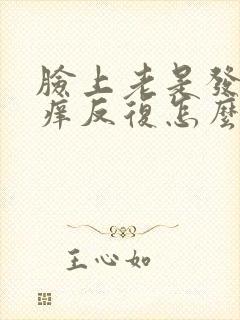 臉上老是發
痒反復怎麼
王心如